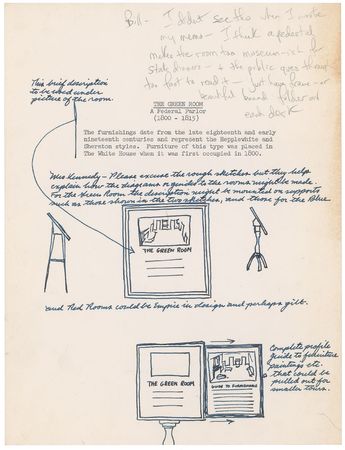 Bill - I didnt see this when I wrote
my memo - I think a pedestal
makes the room too museum-ish for
state dinners - + the public goes through
too fast to read it - Just have one - or
beautiful wood folder on
each desk
This brief description
to be used under
picture of the room.
THE GREEN ROOM
A Federal Parlor
(1800 - 1815)
The furnishings date from the late eighteenth and early
nineteenth centuries and represent the Hepplewhite and
Sheraton styles. Furniture of this type was placed in
The White House when it was first occupied in 1800.
Mrs Kennedy - Please excuse the rough sketches but they help
explain how the diagrams or guides to the rooms might be made.
For the Green Room the description might be mounted on supports
such as those shown in the two sketches, and those for the Blue
THE GREEN ROOM
and Red Rooms could be Empire in design and perhaps gilt.
THE GREEN ROOM
GUIDE TO FURNISHINGS
Complete profile
guide to furniture
paintings etc.
that could be
pulled out for
smaller tours.